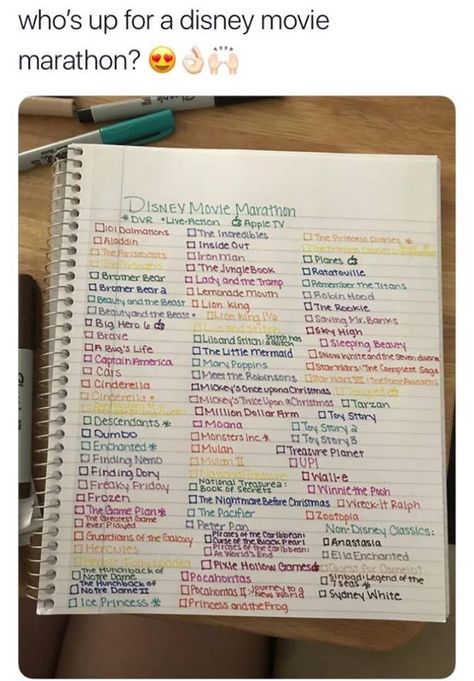 who's up for a disney movie
marathon? 😍👌🏻🙌🏻
DISNEY MOVIE MARATHON
*DVR •Live-Action Apple TV
101 Dalmations
Aladdin
The Aristocats
Brother Bear
Brother Bear 2
Beauty and the Beast
Beauty and the Beast •
Big Hero 6
Brave
A Bug's Life
Captain America
Cars
Cinderella
Cinderella •
Descendants *
Dumbo
Enchanted *
Finding Nemo
Finding Dory
Freaky Friday
Frozen
The Game Plan *
The Greatest Game
ever Played
Guardians of the Galaxy
Hercules
The Hunchback of
Notre Dame
The Hunchback of
Notre Dame II
Ice Princess *
The Incredibles
Inside Out
Iron Man
The Jungle Book
Lady and the Tramp
Lemonade Mouth
Lion King
Lion King 1½
Lilo and Stitch
Lilo and Stitch: Stitch has
a Glitch
The Little Mermaid
Mary Poppins
Meet the Robinsons
Mickey's Once upon a Christmas
Mickey's Twice Upon a Christmas
Million Dollar Arm
Moana
Monsters Inc. *
Mulan
Mulan II
National Treasure
National Treasure 2:
Book of Secrets
The Nightmare Before Christmas
The Pacifier
Peter Pan
Pirates of the Caribbean:
Curse of the Black Pearl
Pirates of the Caribbean:
At World's End
Pixie Hollow Games
Pocahontas
Pocahontas II: Journey to a
New World
Princess and the Frog
The Princess Diaries *
Planes
Ratatouille
Remember the Titans
Robin Hood
The Rookie
Saving Mr. Banks
Sky High
Sleeping Beauty
Snow White and the Seven dwarves
Star Wars: The Complete Saga
Star Wars VII: The Force Awakens
Tangled
Tarzan
Toy Story
Toy Story 2
Toy Story 3
Treasure Planet
UP!
Wall-e
Winnie the Pooh
Wreck-It Ralph
Zootopia
Non-Disney Classics:
Anastasia
Ella Enchanted
Quest for Camelot
Sinbad: Legend of the
7 seas *
Sydney White